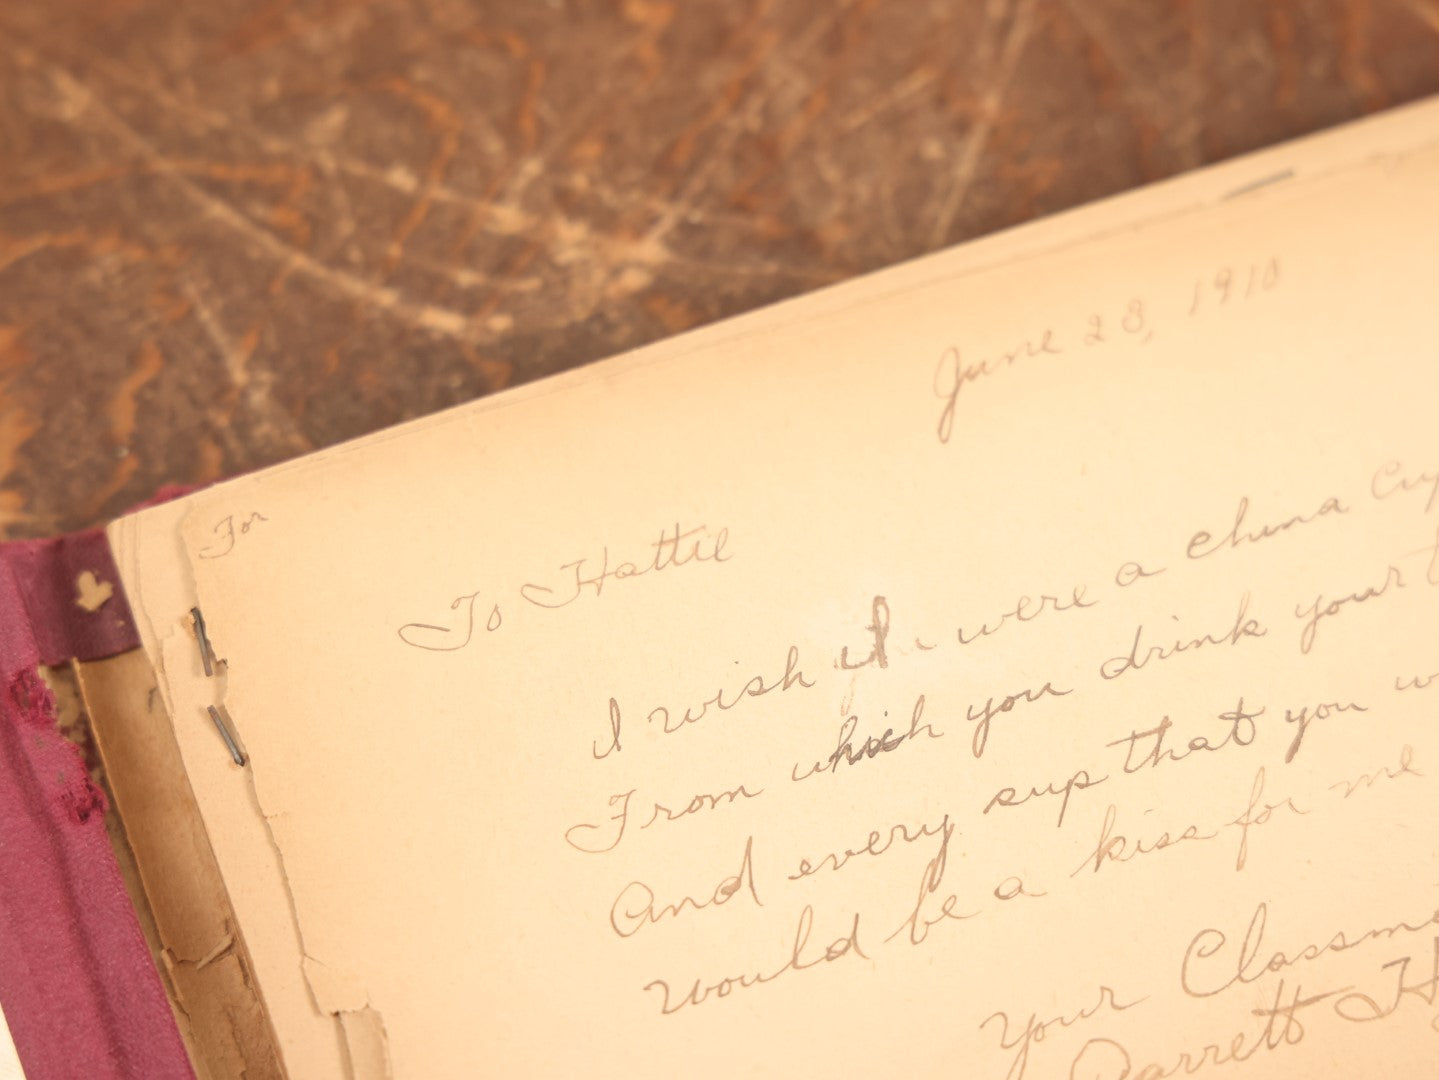 June 23, 1910
For
To Hattie
I wish I were a china Cup
From which you drink your
And every sup that you
would be a kiss for me
Your
Garrett